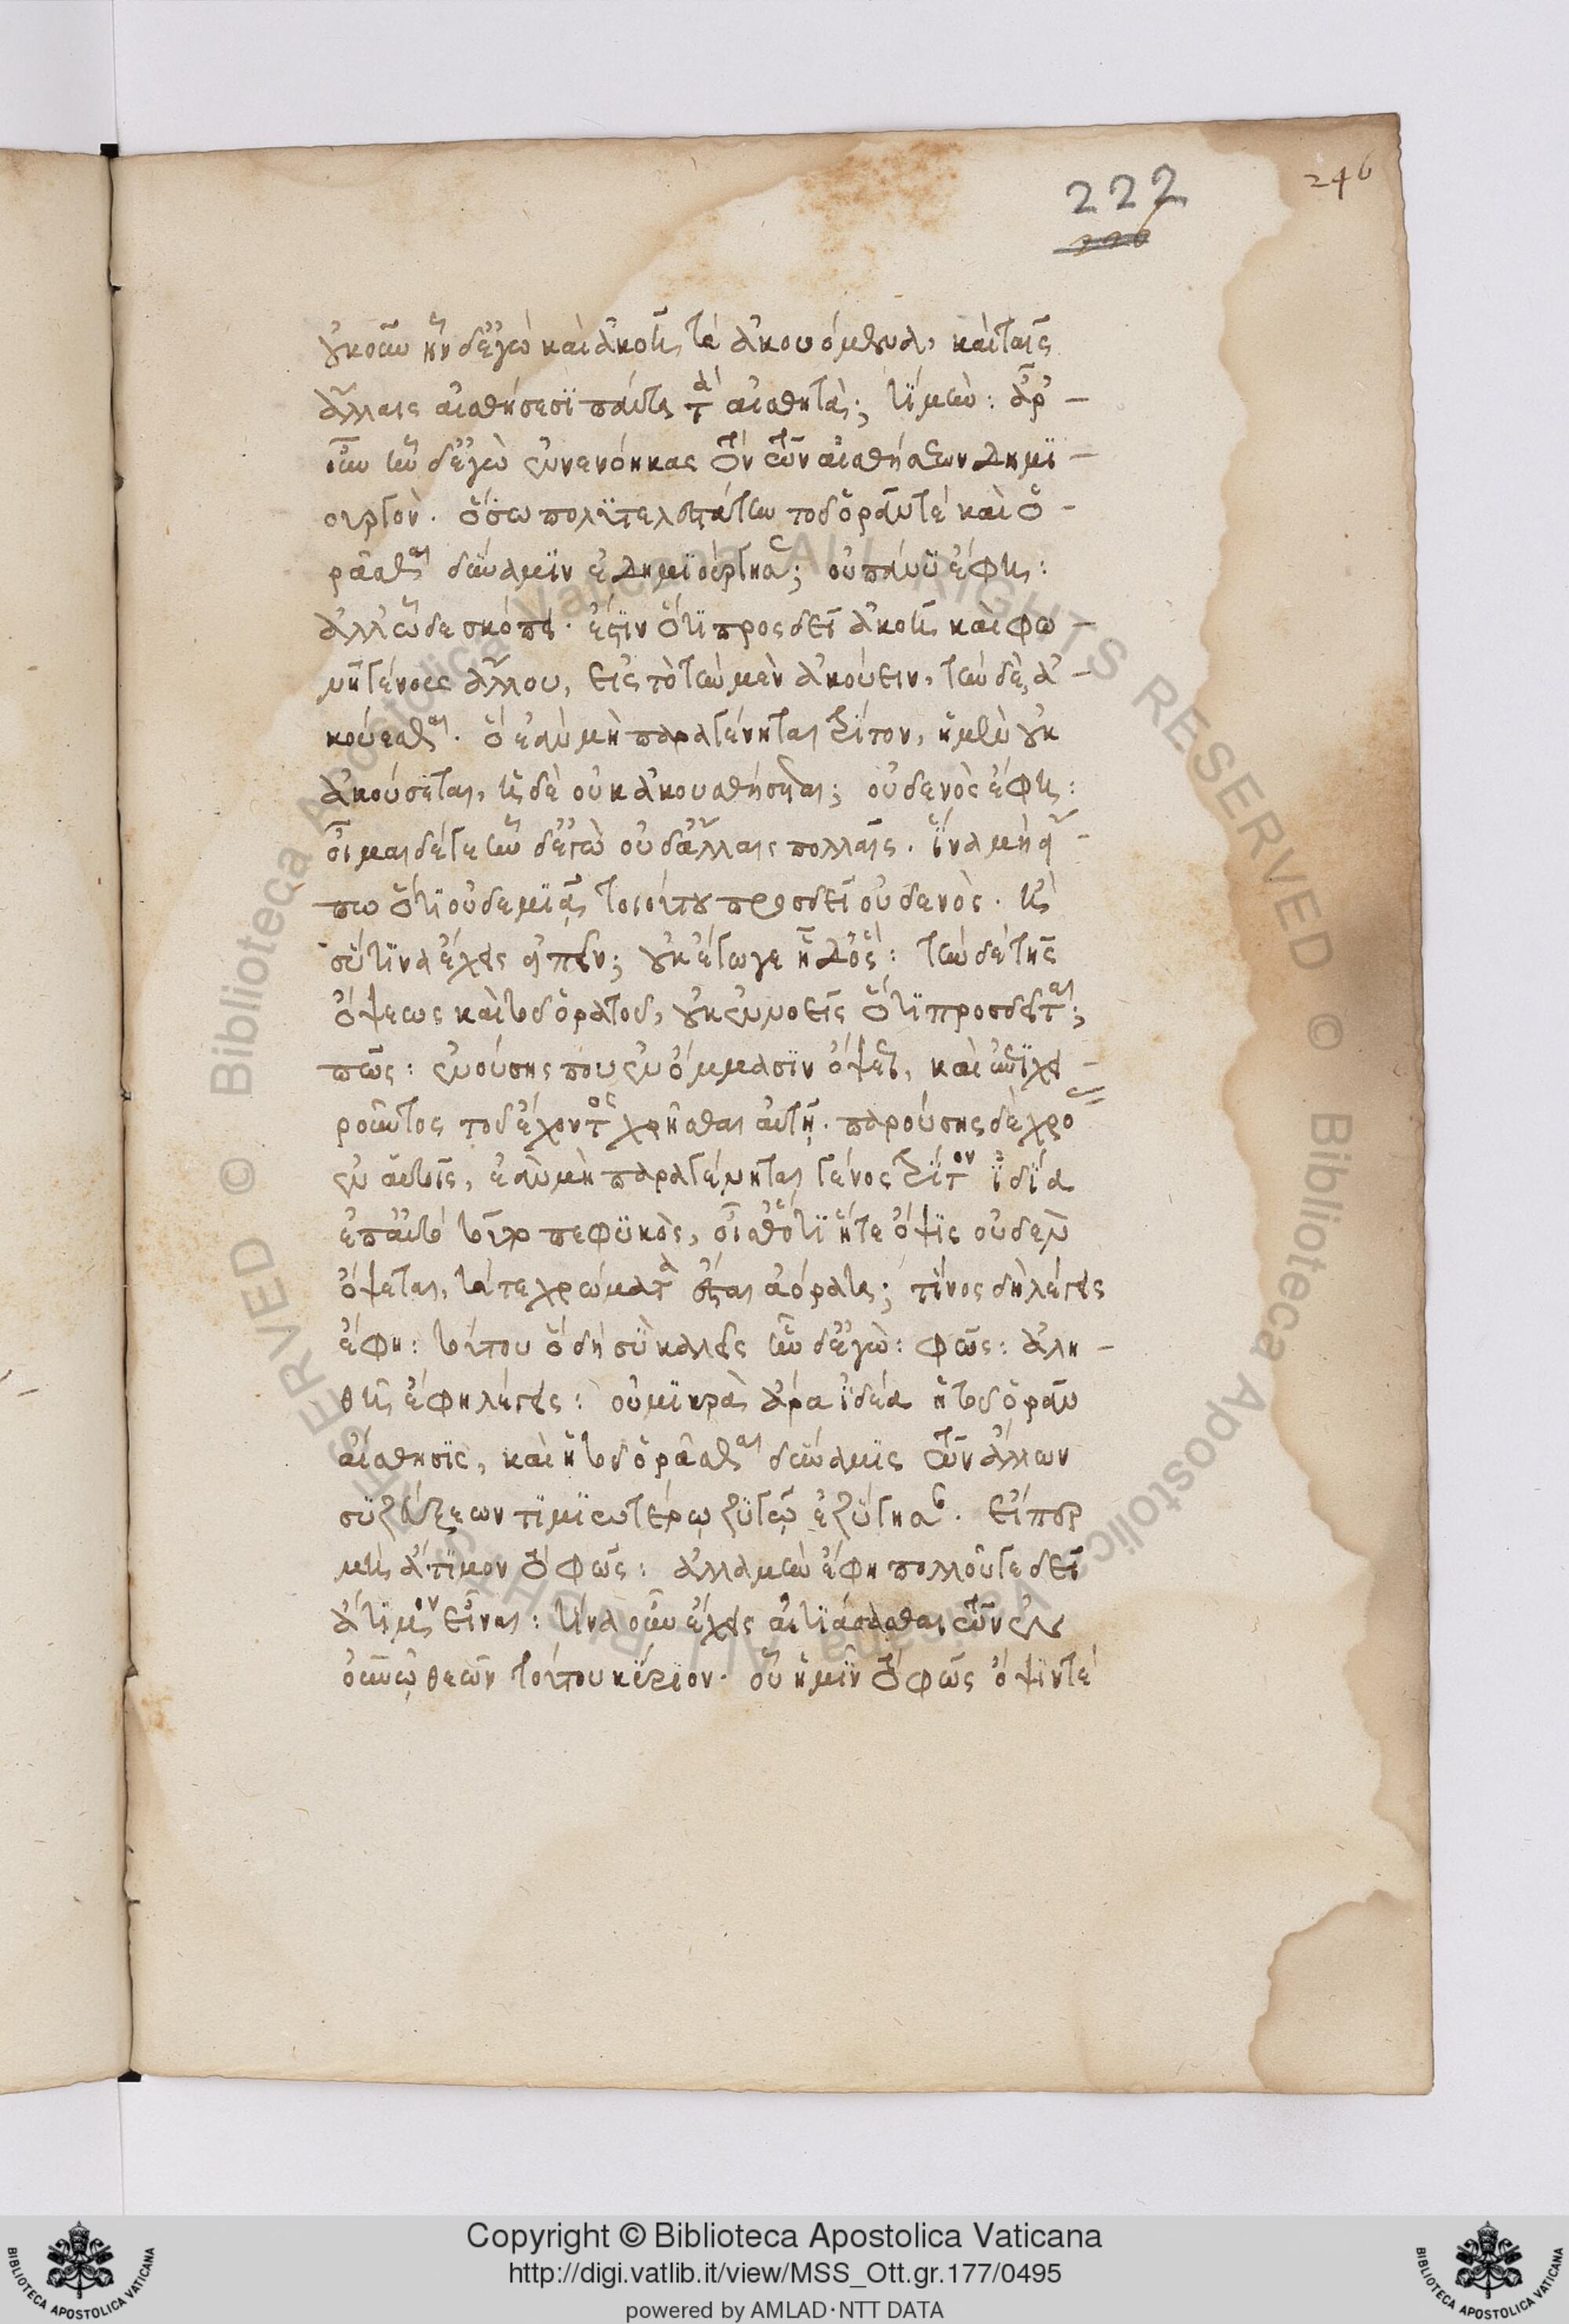 246
222
οὐκοῦν ἦν δ' ἐγὼ καὶ ἀκοῆ τὰ ἀκουόμενα, καὶ ταῖς
ἄλλαις αἰσθήσεσϊ πάντα τὰ αἰσθητὰ; τί μὴν: ἆρ' -
οὖν ἦν δ' ἐγὼ ἐννενόηκας τὸν τῶν αἰσθήσεων δημϊ -
ουργὸν. ὅσω πολϋτελεστάτην τοῦ ὁρᾶν τὲ καὶ ὁ -
ρᾶσθαι δύναμϊν ἐδημϊούργησε; οὐ πάνϋ ἔφη:
ἀλλ' ὧδε σκόπει. ἔστϊν ὅ τϊ προσδεῖ ἀκοῆ καὶ φω -
νῆ γένους ἄλλου, εἰς τὸ τὴν μὲν ἀκούειν, τὴν δὲ, ἀ -
κούεσθαι. ὃ ἐὰν μὴ παραγένηται τρίτον, ἡ μὲν οὐκ
ἀκούσεται, ἡ δὲ οὐκ ἀκουσθήσεται; οὐδενὸς ἔφη:
οἶμαι δέ γε ἦν δ' ἐγὼ οὐδ' ἄλλαις πολλαῖς. ἵνα μὴ εἴ -
πω ὅτϊ οὐδεμϊᾷ τοιούτου προσδεῖ οὐδενὸς. ἢ
σὺ τϊνὰ ἔχεις εἰπεῖν; οὐκ ἔγωγε ἦ δ' ὅς: τὴν δὲ τῆς
ὄψεως καὶ τοῦ ὁρατοῦ, οὐκ ἐννοεῖς ὅτϊ προσδεῖται;
πῶς: ἐνούσης που ἐν ὄμμασϊν ὄψεως, καὶ ἐπϊχει -
ροῦντος τοῦ ἔχοντος χρῆσθαι αὐτῆ. παρούσης δὲ χρόας
ἐν αὐτοῖς, ἐὰν μὴ παραγένηται γένος τρϊτον ϊδϊα
ἐπ' αὐτὸ τοῦτο πεφϋκὸς, οἶσθ' ὅτϊ ἥ τε ὄψϊς οὐδὲν
ὄψεται, τά τε χρώματα ἔσται ἀόρατα; τίνος δὴ λέγεις
ἔφη: τούτου ὃ δὴ σὺ καλεῖς ἦν δ' ἐγὼ: φῶς: ἀλη -
θῆ ἔφη λέγεις: οὐ μϊκρᾷ ἄρα ϊδέα ἡ τοῦ ὁρᾶν
αἴσθησϊς, καὶ ἡ τοῦ ὁρᾶσθαι δύναμϊς τῶν ἄλλων
σϋζεύξεων τϊμϊωτέρῳ ζϋγῷ ἐζϋγησαν. εἴπερ
μὴ ἄτϊμον τὸ φῶς: ἀλλὰ μὴν ἔφη πολλοῦ γε δεῖ
ἄτϊμον εἶναι: τίνα οὖν ἔχεις αἰτϊάσασθαι τῶν ἐν
οὐρανῷ θεῶν τούτου κύρϊον. οὗ ἡμῖν τὸ φῶς ὄψϊν τὲ
Copyright © Biblioteca Apostolica Vaticana
http://digi.vatlib.it/view/MSS_Ott.gr.177/0495
powered by AMLAD·NTT DATA